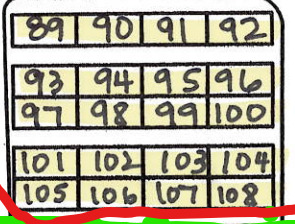 89 90 91 92
93 94 95 96
97 98 99 100
101 102 103 104
105 106 107 108